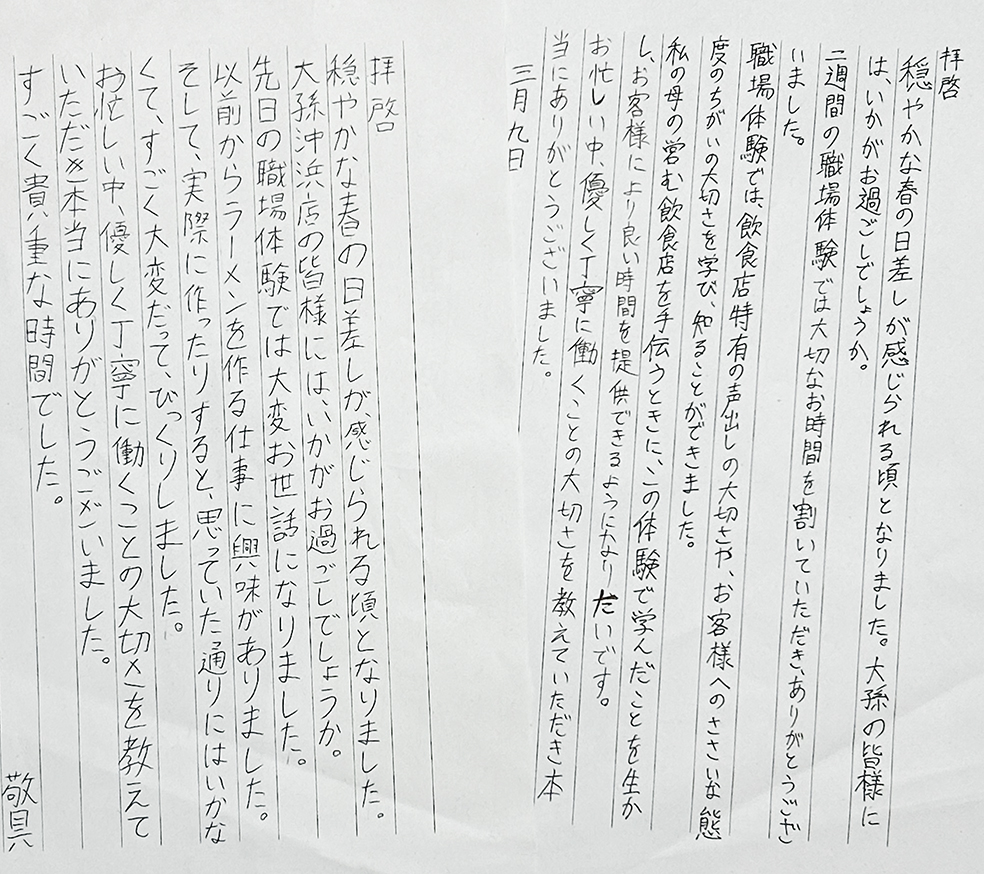 拝啓
穏やかな春の日差しが感じられる頃となりました。大孫の皆様に
は、いかがお過ごしでしょうか。
二週間の職場体験では大切なお時間を割いていただき、ありがとうござ
いました。
職場体験では、飲食店特有の声出しの大切さや、お客様へのささいな態
度のちがいの大切さを学び、知ることができました。
私の母の営む飲食店を手伝うときに、この体験で学んだことを生か
し、お客様により良い時間を提供できるようになりたいです。
お忙しい中、優しく丁寧に働くことの大切さを教えていただき本
当にありがとうございました。
三月九日
拝啓
穏やかな春の日差しが、感じられる頃となりました。
大孫沖浜店の皆様には、いかがお過ごしでしょうか。
先日の職場体験では大変お世話になりました。
以前からラーメンを作る仕事に興味がありました。
そして、実際に作ったりすると、思っていた通りにはいかな
くて、すごく大変だって、びっくりしました。
お忙しい中、優しく丁寧に働くことの大切さを教えて
いただき本当にありがとうございました。
すごく貴重な時間でした。
敬具